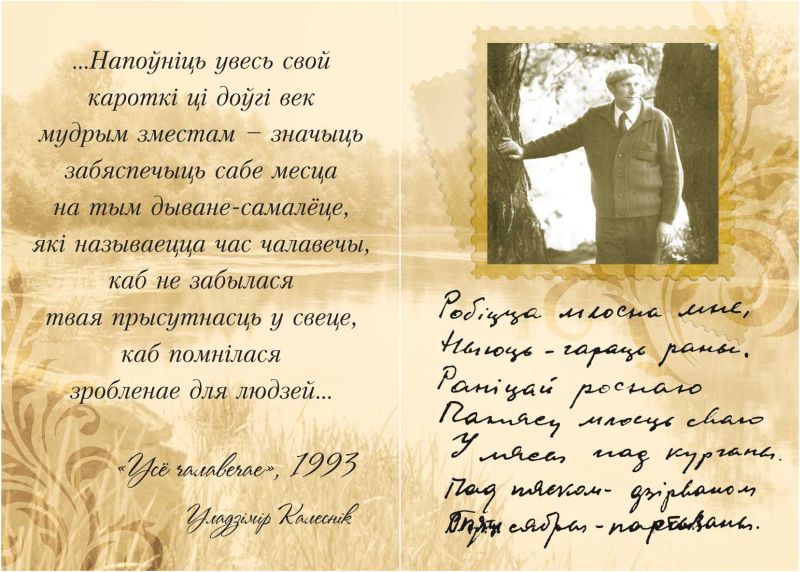 ...Напоўніць увесь свой
кароткі ці доўгі век
мудрым зместам – значыць
забяспечыць сабе месца
на тым дыване-самалёце,
які называецца час чалавечы,
каб не забылася
твая прысутнасць у свеце,
каб помнілася
зробленае для людзей...
«Усё чалавечае», 1993
Уладзімір Калеснік
Робіцца млосна мне,
Ныюць - гараць раны.
Раніцай роснаю
Панясу млосць сваю
У лясы пад курганы.
Пад пяском - дзірваном
сябры - партызаны.